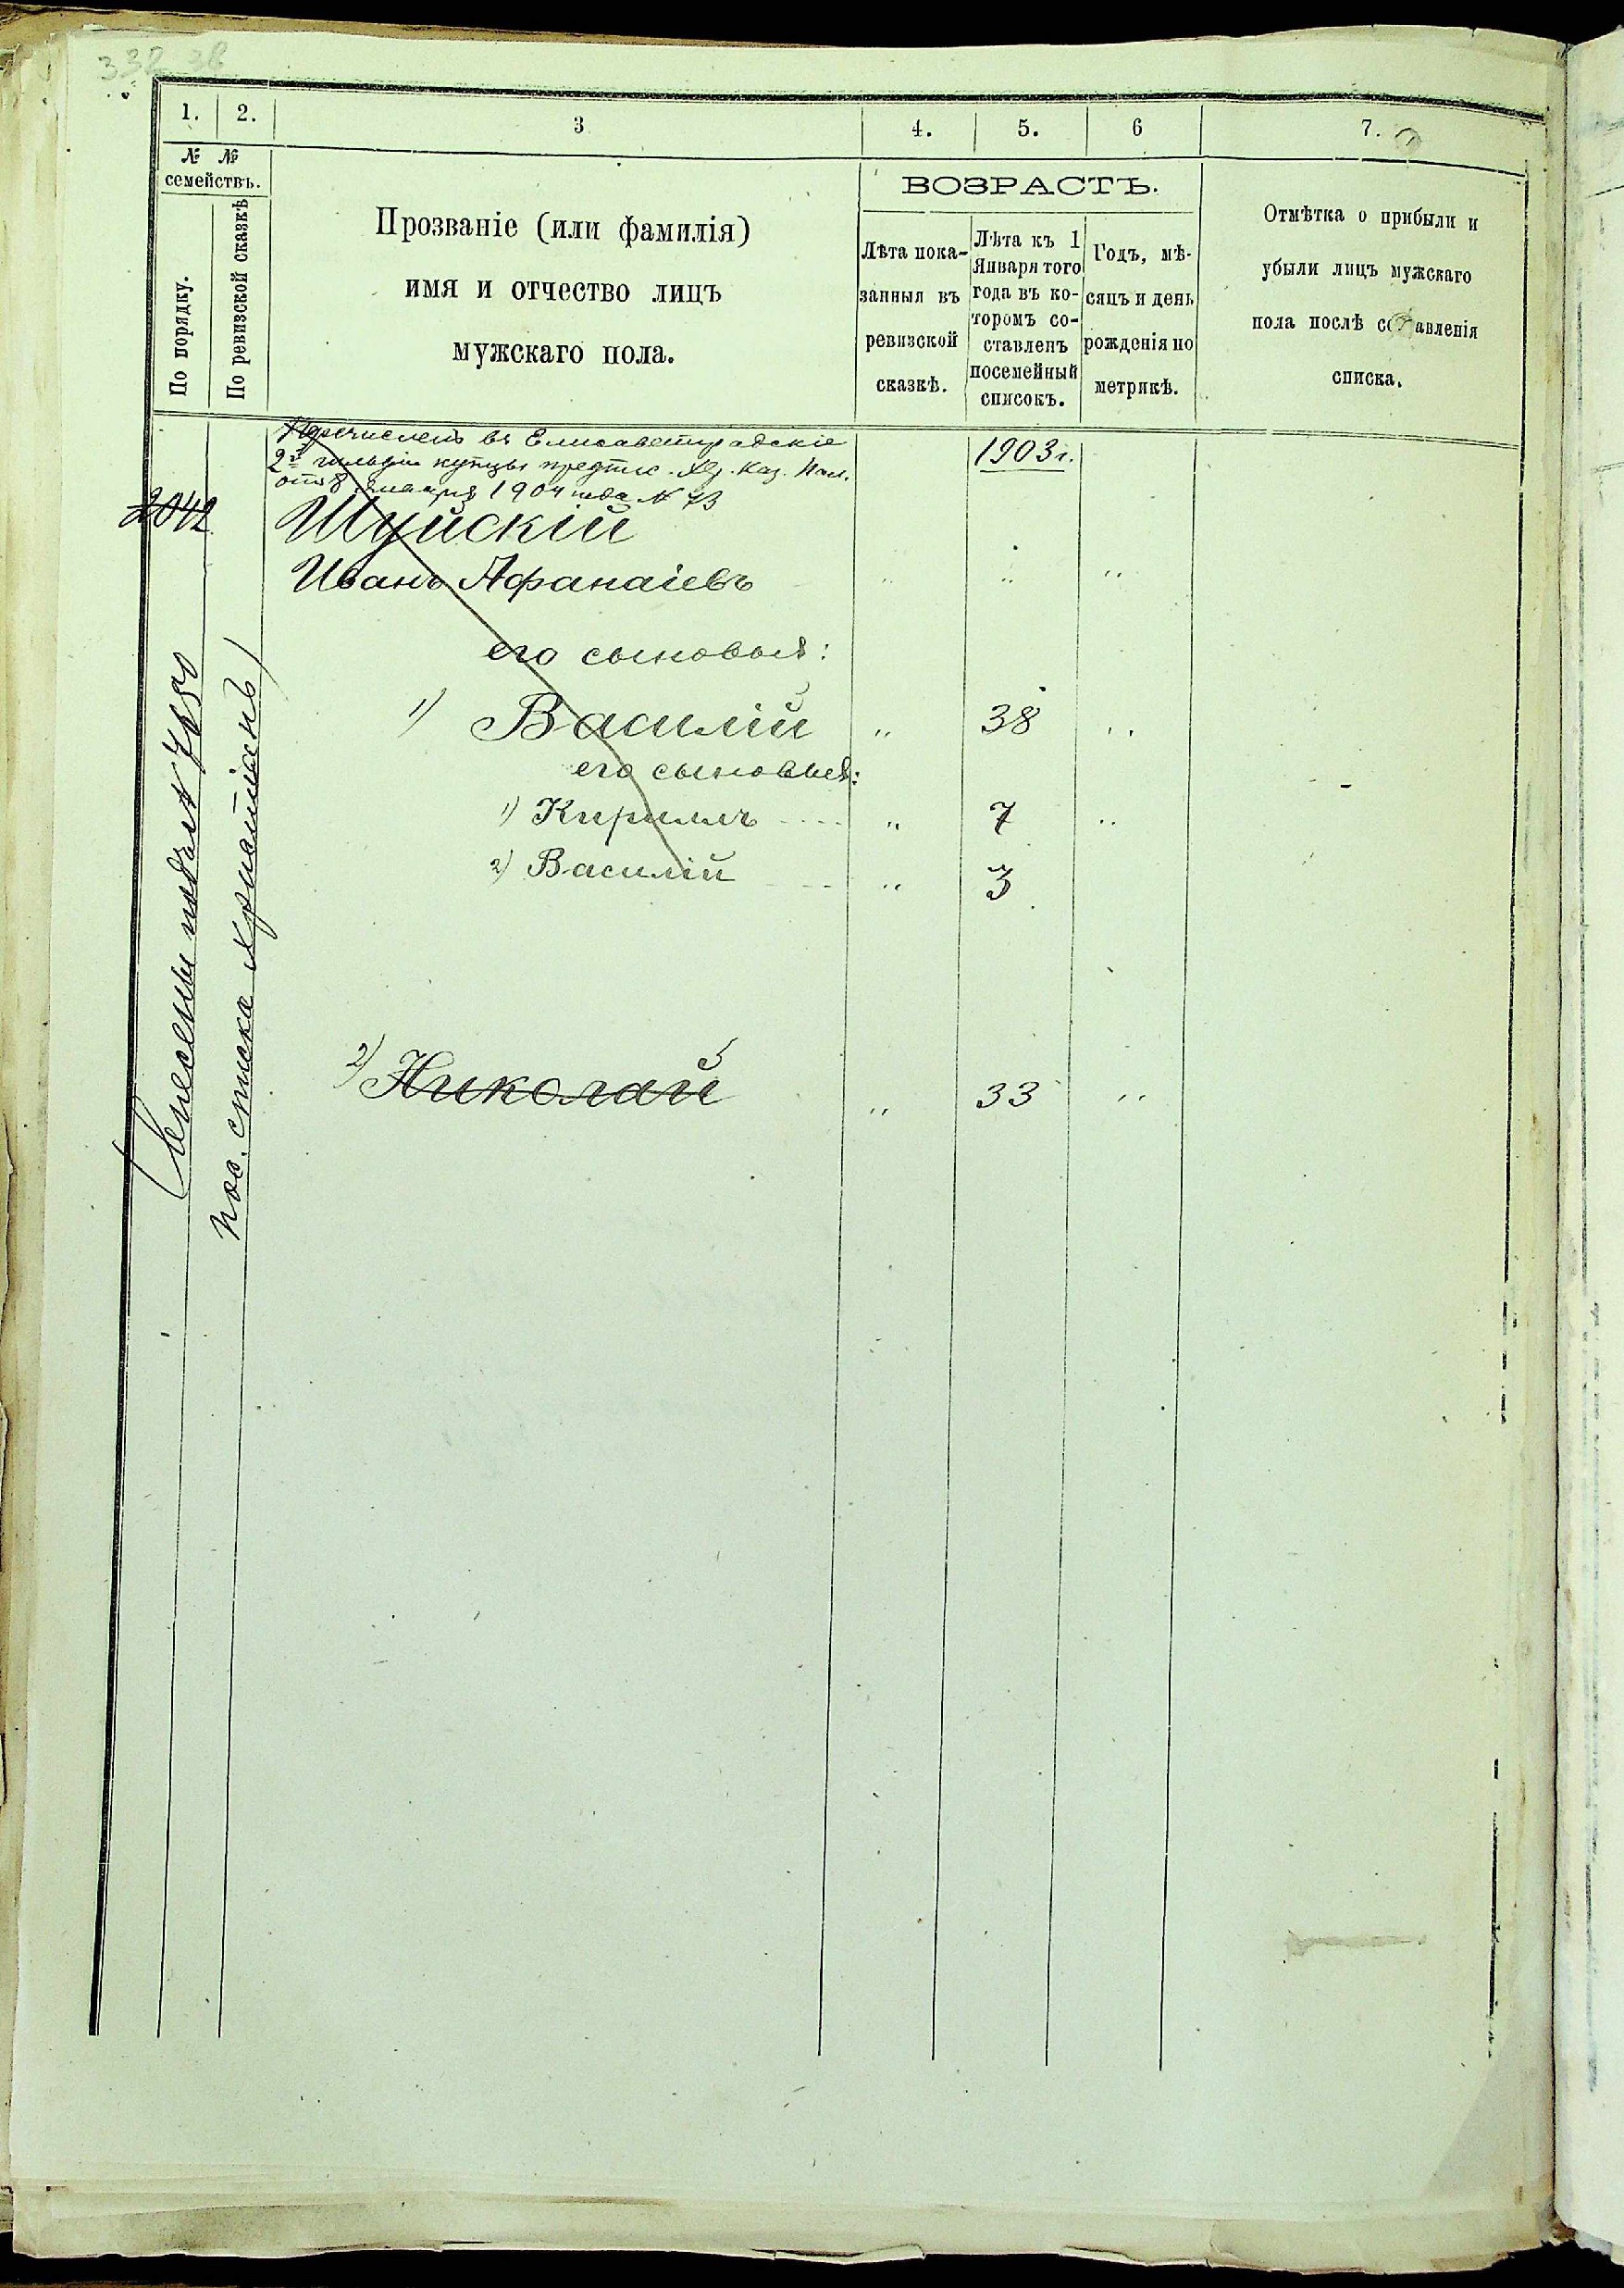 332 38
1. 2. 3 4. 5. 6 7.
№ № семействъ.
По порядку.
По ревизской сказкѣ
Прозваніе (или фамилія)
имя и отчество лицъ
мужскаго пола.
ВОЗРАСТЪ.
Лѣта пока-
занныя въ
ревизской
сказкѣ.
Лѣта къ 1
Января того
года въ ко-
торомъ со-
ставленъ
посемейный
списокъ.
Годъ, мѣ-
сяцъ и день
рожденія по
метрикѣ.
Отмѣтка о прибыли и
убыли лицъ мужскаго
пола послѣ составленія
списка.
Перечислен въ Елисаветградскіе
2й гильдіи купцы предпис. Хер. Каз. Пал.
отъ 8 Января 1904 года № 73
1903 г.
2042
Шуйскій
Иванъ Афанасіевъ " " "
его сыновья:
1) Василій " 38 "
его сыновья:
1) Кириллъ " 7 "
2) Василій " 3
2) Николай " 33 "
(внесены подъ № 7650
пос. списка христіанъ)